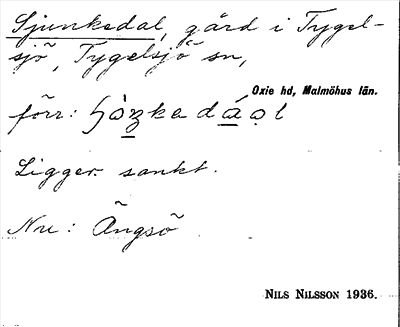 Sjunkedal, gård i Tygel-
sjö, Tygelsjö sn,
Oxie hd, Malmöhus län.
förr:
Ligger sankt.
Nu: Ängsö
NILS NILSSON 1936.